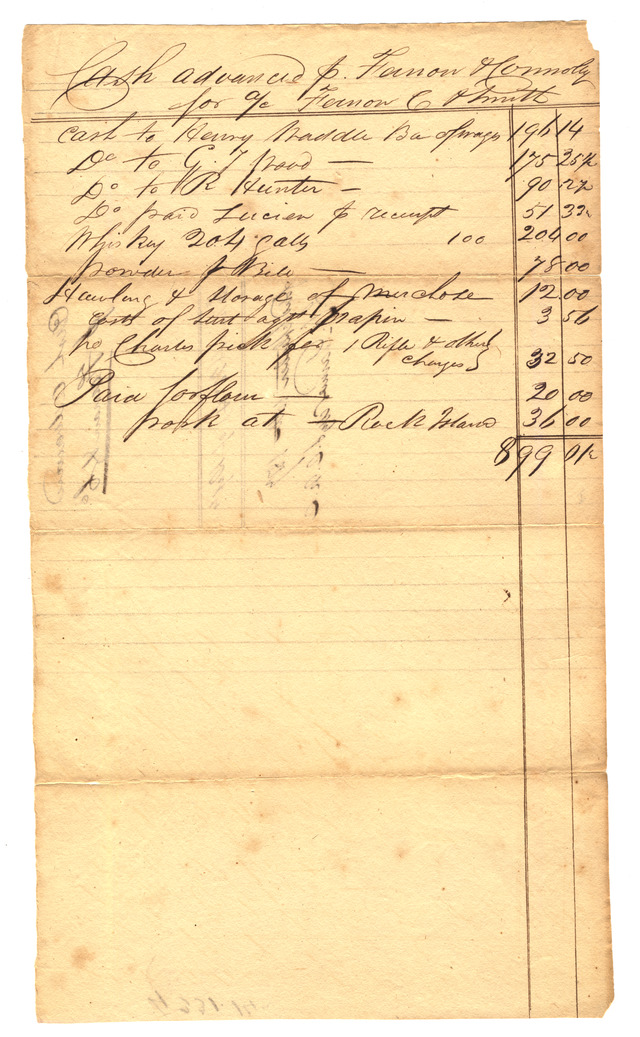 Cash advanced p. Farnon & Connoly
for a/c Farnon C & Smith
Cash to Henry Waddle Ba of wages 196 14
Do to G. J 175 25½
Do to R Hunter — 90 27
Do paid Lucien p receipt 51 33
Whiskey 204 galls 100 204 00
powder p Bill — 78 00
Hauling & Storage of 12 00
Costs of Suit agst Papin — 3 56
Charles pick for 1 Rifle & other
charges } 32 50
Paid for flour 20 00
pork at — Rock Island 36 00
899